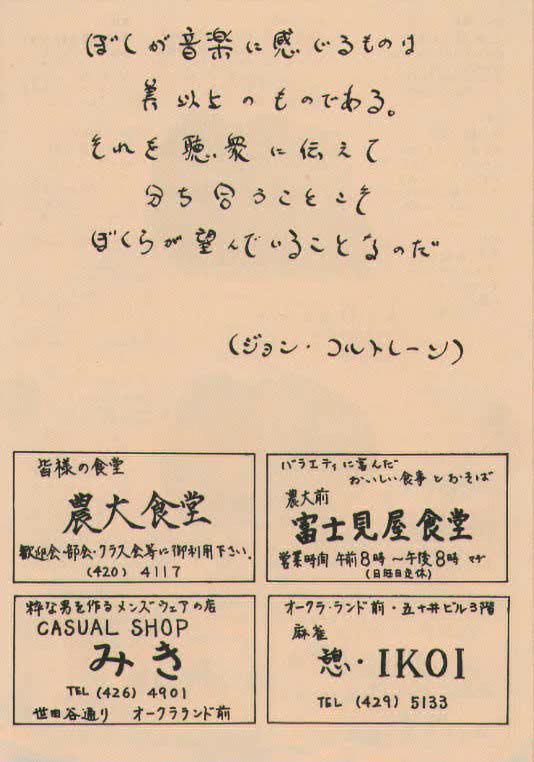 ぼくが音楽に感じるものは
美以上のものである。
それを聴衆に伝えて
分ち合うことこそ
ぼくらが望んでいることなのだ
(ジョン・コルトレーン)
皆様の食堂
農大食堂
歓迎会・部会・クラス会等に御利用下さい。
(420) 4117
バラエティに富んだ
おいしい食事とおそば
農大前
富士見屋食堂
営業時間 午前8時〜午後8時マデ
(日祭日定休)
粋な男を作るメンズウェアの店
CASUAL SHOP
みき
TEL (426) 4901
世田谷通り オークラランド前
オークラ・ランド前・五十井ビル3階
麻雀
憩・IKOI
TEL (429) 5133